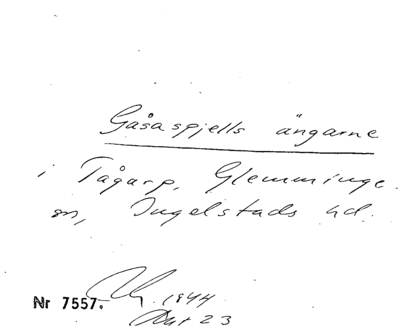 Gåsaspjells ängarne
i Tågarp, Glemminge
sn, Ingelstads hd.
Nr 7557. 1844
Akt 23